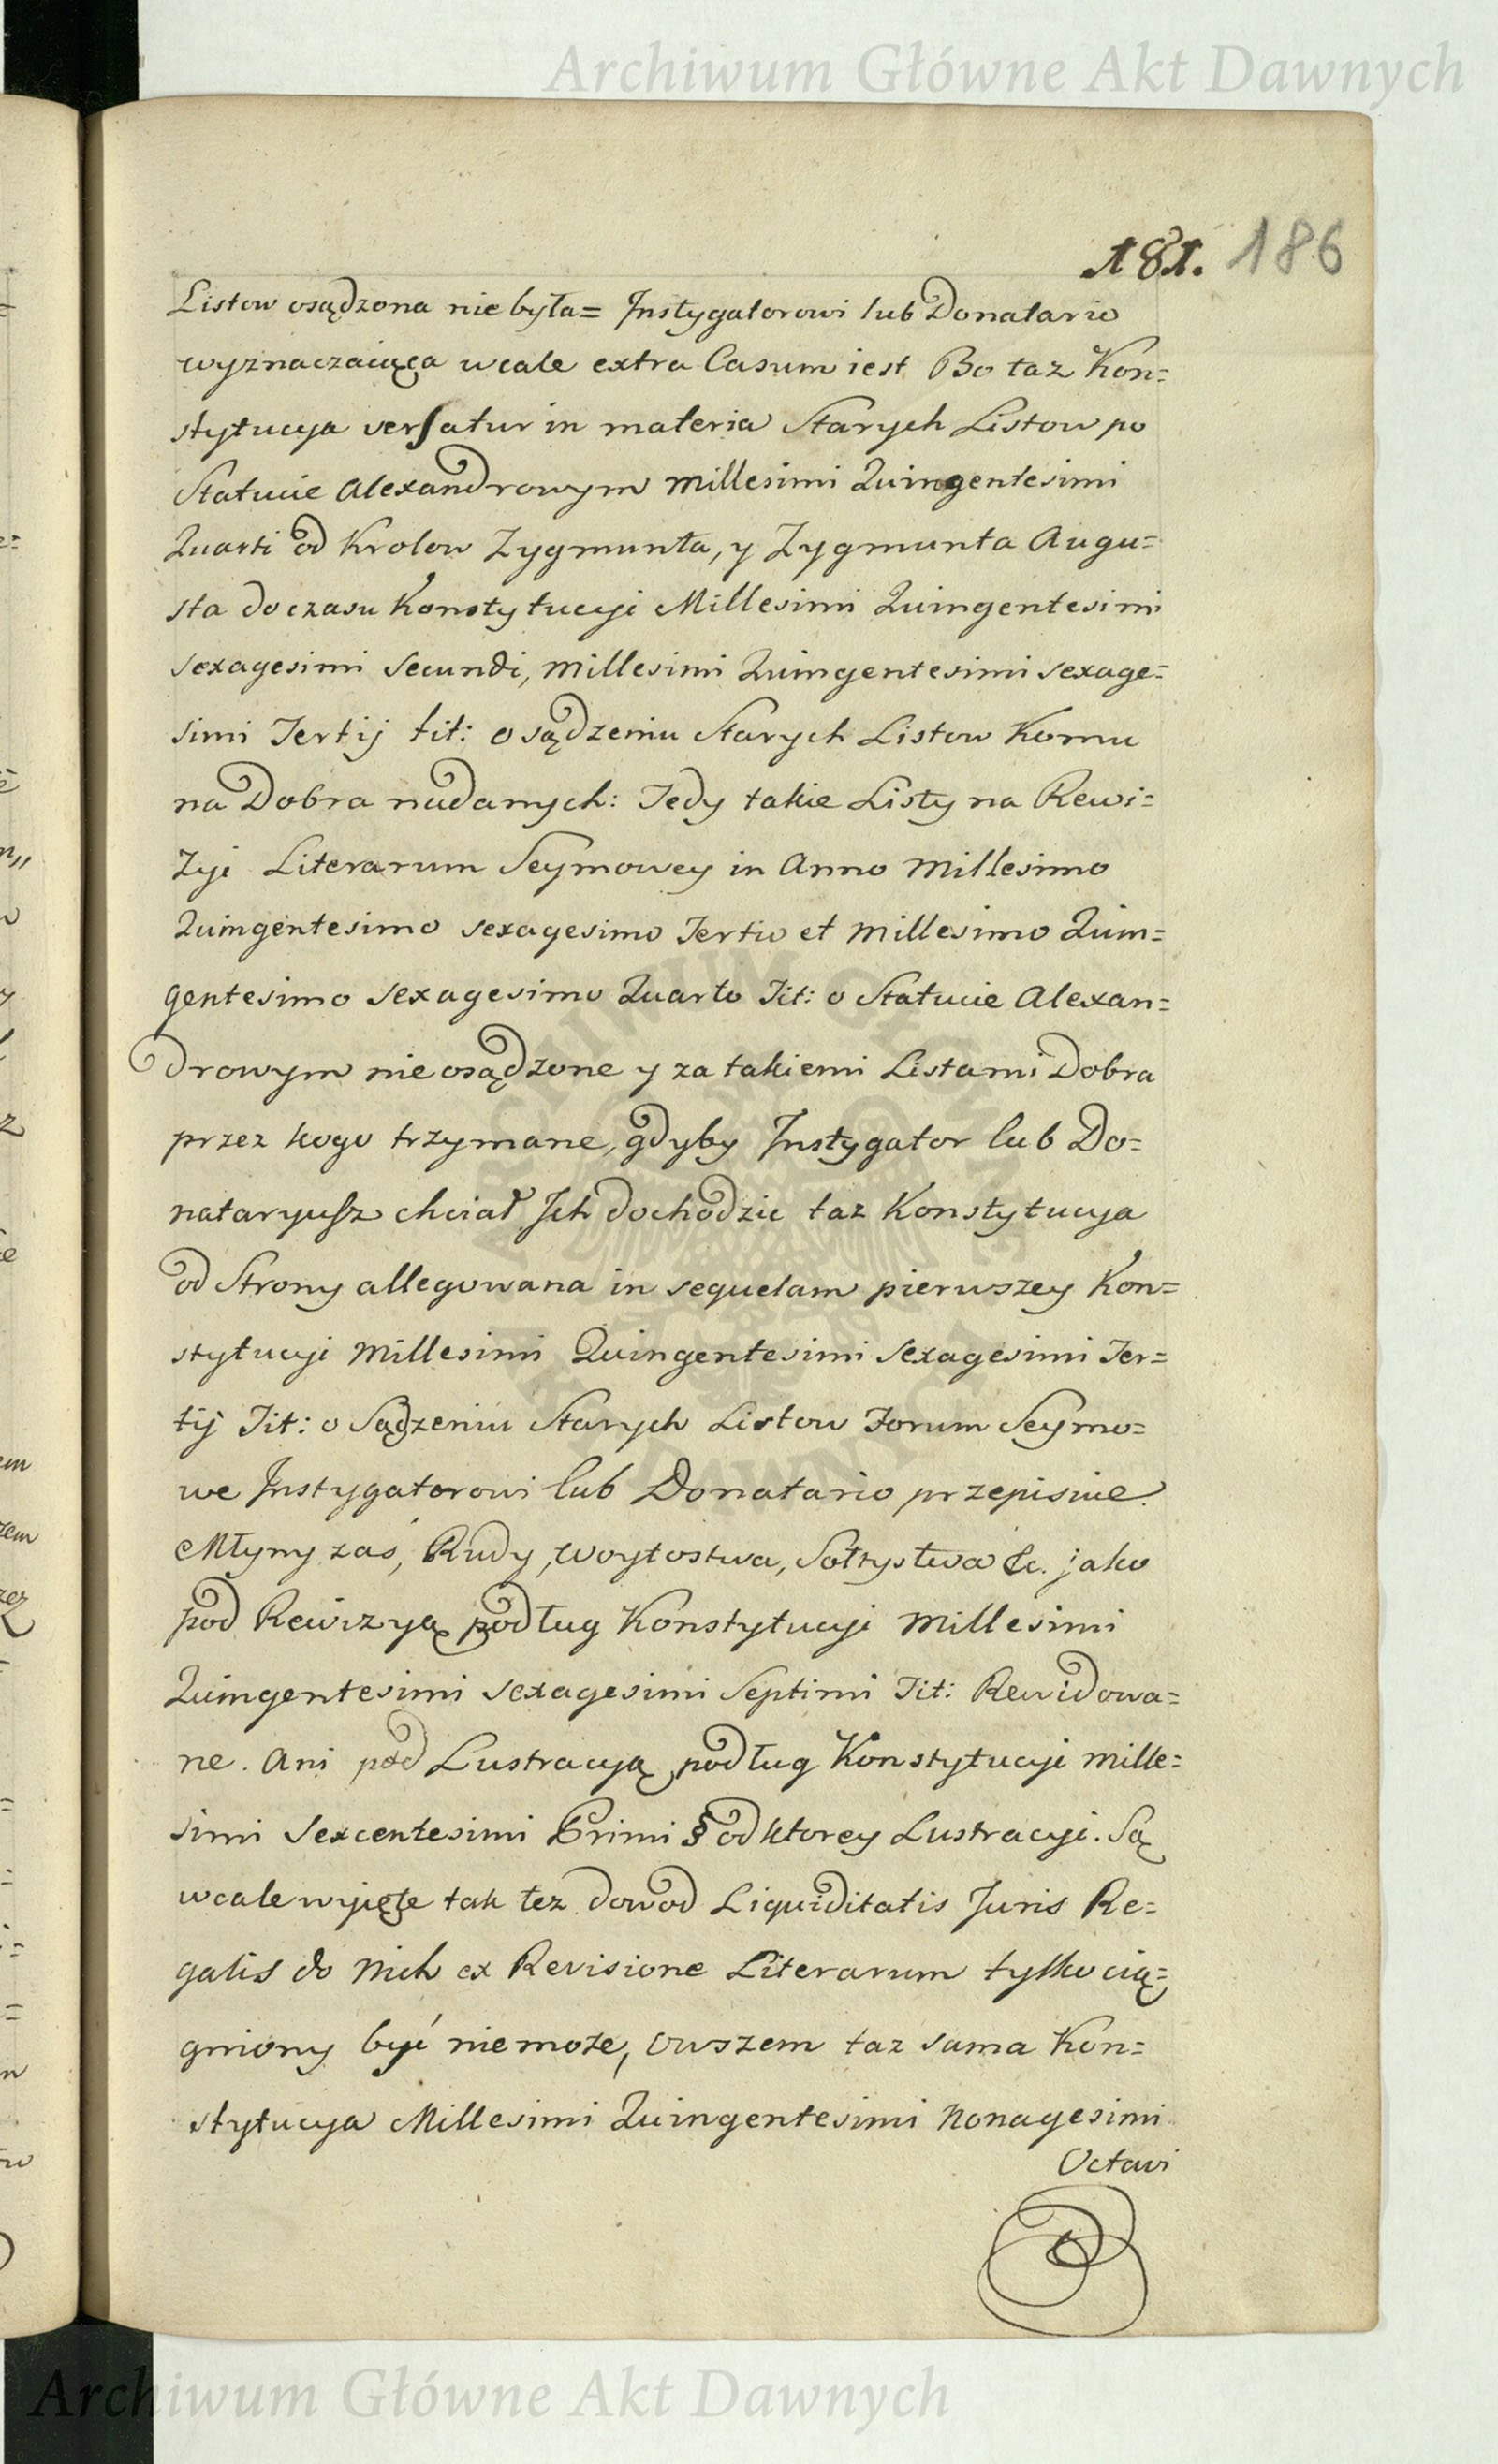 Archiwum Główne Akt Dawnych
181. 186
Listow osądzona nie była= Instygatorowi lub Donatario
wyznaczaiąca wcale extra Casum iest Bo taz Kon=
stytucya versatur in materia Starych Listow po
Statucie Alexandrowym Millesimi Quingentesimi
Quarti od Krolow Zygmunta, y Zygmunta Augu=
sta do czasu Konstytucyi Millesimi Quingentesimi
sexagesimi Secundi, Millesimi Quingentesimi sexage=
simi Tertij tit: o sądzeniu Starych Listow Komu
na Dobra nadanych: Tedy takie Listy na Rewi=
zyi Literarum Seymowey in Anno Millesimo
Quingentesimo sexagesimo Tertio et Millesimo Quin=
gentesimo sexagesimo Quarto Tit: o Statucie Alexan=
drowym nie osądzone y za takiemi Listami Dobra
przez kogo trzymane, gdyby Instygator lub Do=
nataryusz chciał Ich dochodzic taz Konstytucya
od Strony allegowana in sequelam pierwszey Kon=
stytucyi Millesimi Quingentesimi Sexagesimi Ter=
tij Tit: o Sądzeniu Starych Listow Forum Seymo=
we Instygatorowi lub Donatario przepisuie.
Młyny zaś, Rudy, Woytostwa, Sołtystwa &c. jako
pod Rewizyą podług Konstytucyi Millesimi
Quingentesimi sexagesimi Septimi Tit: Rewidowa=
ne. Ani pod Lustracyą podług Konstytucyi Mille=
simi Sexcentesimi Primi § od ktorey Lustracyi. Są
wcale wyięte tak tez dowod Liquiditatis Juris Re=
galis do Nich ex Revisione Literarum tylko cią=
gniony być nie moze, owszem taz sama Kon=
stytucya Millesimi Quingentesimi Nonagesimi
Octavi
Archiwum Główne Akt Dawnych